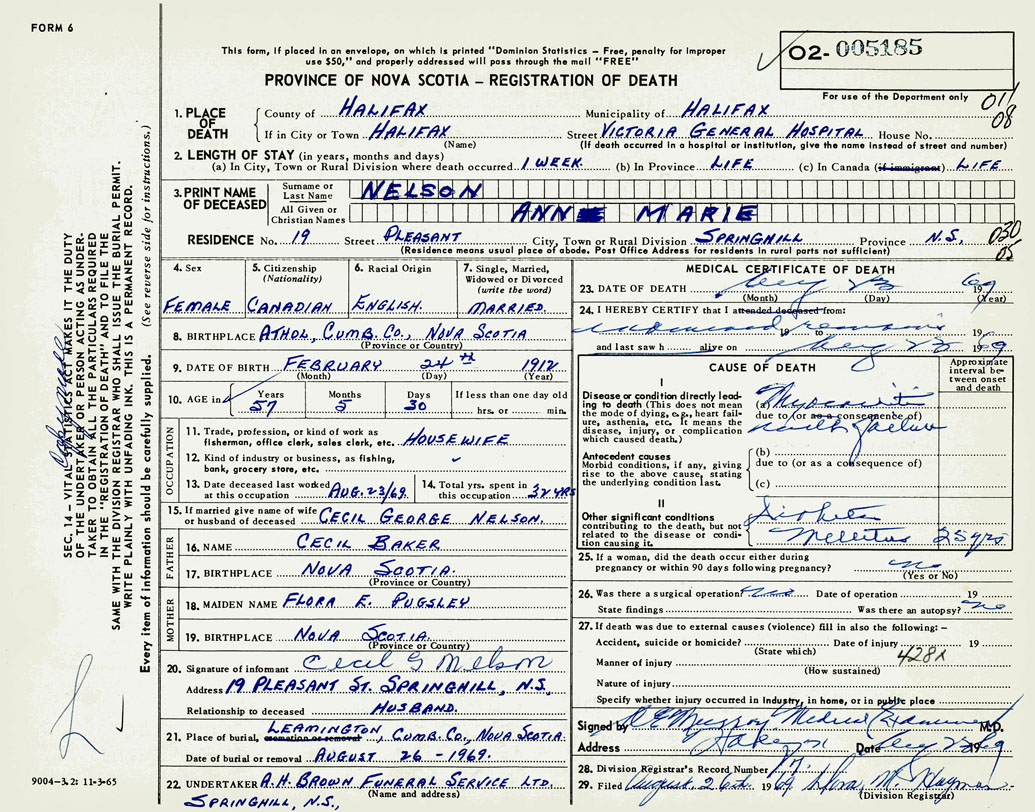 FORM 6
This form, if placed in an envelope, on which is printed "Dominion Statistics – Free, penalty for improper
use $50," and properly addressed will pass through the mail "FREE"
O2- 005185
PROVINCE OF NOVA SCOTIA – REGISTRATION OF DEATH
For use of the Department only
011
08
1. PLACE OF DEATH
County of HALIFAX Municipality of HALIFAX
If in City or Town HALIFAX Street VICTORIA GENERAL HOSPITAL House No.
(Name) (If death occurred in a hospital or institution, give the name instead of street and number)
2. LENGTH OF STAY (in years, months and days)
(a) In City, Town or Rural Division where death occurred 1 WEEK (b) In Province LIFE (c) In Canada (if immigrant) LIFE
3. PRINT NAME OF DECEASED
Surname or Last Name NELSON
All Given or Christian Names ANN MARIE
RESIDENCE No. 19 Street PLEASANT City, Town or Rural Division SPRINGHILL Province N.S.
(Residence means usual place of abode. Post Office Address for residents in rural parts not sufficient)
030
05
4. Sex
FEMALE
5. Citizenship
(Nationality)
CANADIAN
6. Racial Origin
ENGLISH
7. Single, Married, Widowed or Divorced
(write the word)
MARRIED
8. BIRTHPLACE ATHOL, CUMB. CO., NOVA SCOTIA
(Province or Country)
9. DATE OF BIRTH FEBRUARY 24TH 1912
(Month) (Day) (Year)
10. AGE in Years Months Days If less than one day old
57 5 30 hrs. or min.
OCCUPATION
11. Trade, profession, or kind of work as
fisherman, office clerk, sales clerk, etc. HOUSEWIFE
12. Kind of industry or business, as fishing,
bank, grocery store, etc.
13. Date deceased last worked
at this occupation AUG. 23/69
14. Total yrs. spent in
this occupation 32 YRS
15. If married give name of wife
or husband of deceased CECIL GEORGE NELSON.
FATHER
16. NAME CECIL BAKER
17. BIRTHPLACE NOVA SCOTIA.
(Province or Country)
MOTHER
18. MAIDEN NAME FLORA E. PUGSLEY
19. BIRTHPLACE NOVA SCOTIA.
(Province or Country)
20. Signature of informant Cecil G Nelson
Address 19 PLEASANT ST. SPRINGHILL, N.S.
Relationship to deceased HUSBAND.
21. Place of burial, cremation or removal LEAMINGTON, CUMB. CO., NOVA SCOTIA
Date of burial or removal AUGUST 26 - 1969.
22. UNDERTAKER A.H. BROWN FUNERAL SERVICE LTD.
(Name and address)
SPRINGHILL, N.S.,
MEDICAL CERTIFICATE OF DEATH
23. DATE OF DEATH Aug 23 1969
(Month) (Day) (Year)
24. I HEREBY CERTIFY that I attended deceased from:
remains 19 to 19
and last saw h alive on Aug 23 1969
CAUSE OF DEATH
Approximate interval between onset and death
I
Disease or condition directly leading to death (This does not mean the mode of dying, e.g., heart failure, asthenia, etc. It means the disease, injury, or complication which caused death.)
(a)
due to (or as a consequence of)
failure
Antecedent causes
Morbid conditions, if any, giving rise to the above cause, stating the underlying condition last.
(b)
due to (or as a consequence of)
(c)
II
Other significant conditions contributing to the death, but not related to the disease or condition causing it.
Diabetes
Mellitus 25 yrs
25. If a woman, did the death occur either during
pregnancy or within 90 days following pregnancy? no
(Yes or No)
26. Was there a surgical operation? no Date of operation 19
State findings Was there an autopsy? no
27. If death was due to external causes (violence) fill in also the following: –
Accident, suicide or homicide? Date of injury 19
(State which)
428X
Manner of injury
(How sustained)
Nature of injury
Specify whether injury occurred in Industry, in home, or in public place
Signed by Murray Medical Examiner M.D.
Address Halifax Date Aug 23 69
28. Division Registrar's Record Number
29. Filed August 26th 1969
(Division Registrar)
SEC. 14 – VITAL STATISTICS ACT MAKES IT THE DUTY
OF THE UNDERTAKER OR PERSON ACTING AS UNDER-
TAKER TO OBTAIN ALL THE PARTICULARS REQUIRED
IN THE "REGISTRATION OF DEATH" AND TO FILE THE
SAME WITH THE DIVISION REGISTRAR WHO SHALL ISSUE THE BURIAL PERMIT.
WRITE PLAINLY WITH UNFADING INK. THIS IS A PERMANENT RECORD.
Every item of information should be carefully supplied. (See reverse side for instructions.)
9004-3.2: 11-3-65